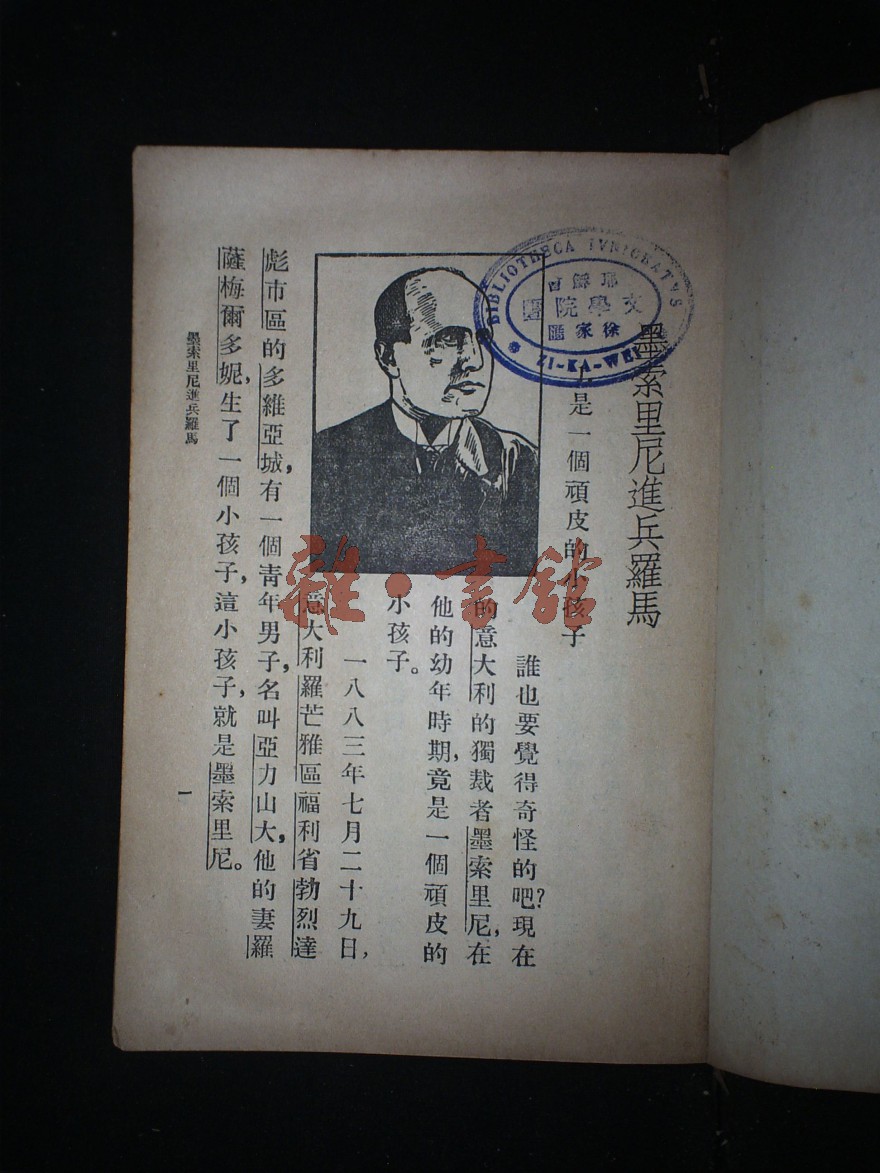 墨索里尼進兵羅馬
是一個頑皮的小孩子
誰也要覺得奇怪的吧?現在
的意大利的獨裁者墨索里尼,在
他的幼年時期,竟是一個頑皮的
小孩子。
一八八三年七月二十九日,
意大利羅芒雅區福利省勃烈達
彪市區的多維亞城,有一個青年男子,名叫亞力山大,他的妻羅
薩梅爾多妮,生了一個小孩子,這小孩子,就是墨索里尼。
墨索里尼進兵羅馬
一
BIBLIOTHECA IVNIORATVS
耶穌會
文學院
徐家匯
ZI-KA-WEI
雜·書館